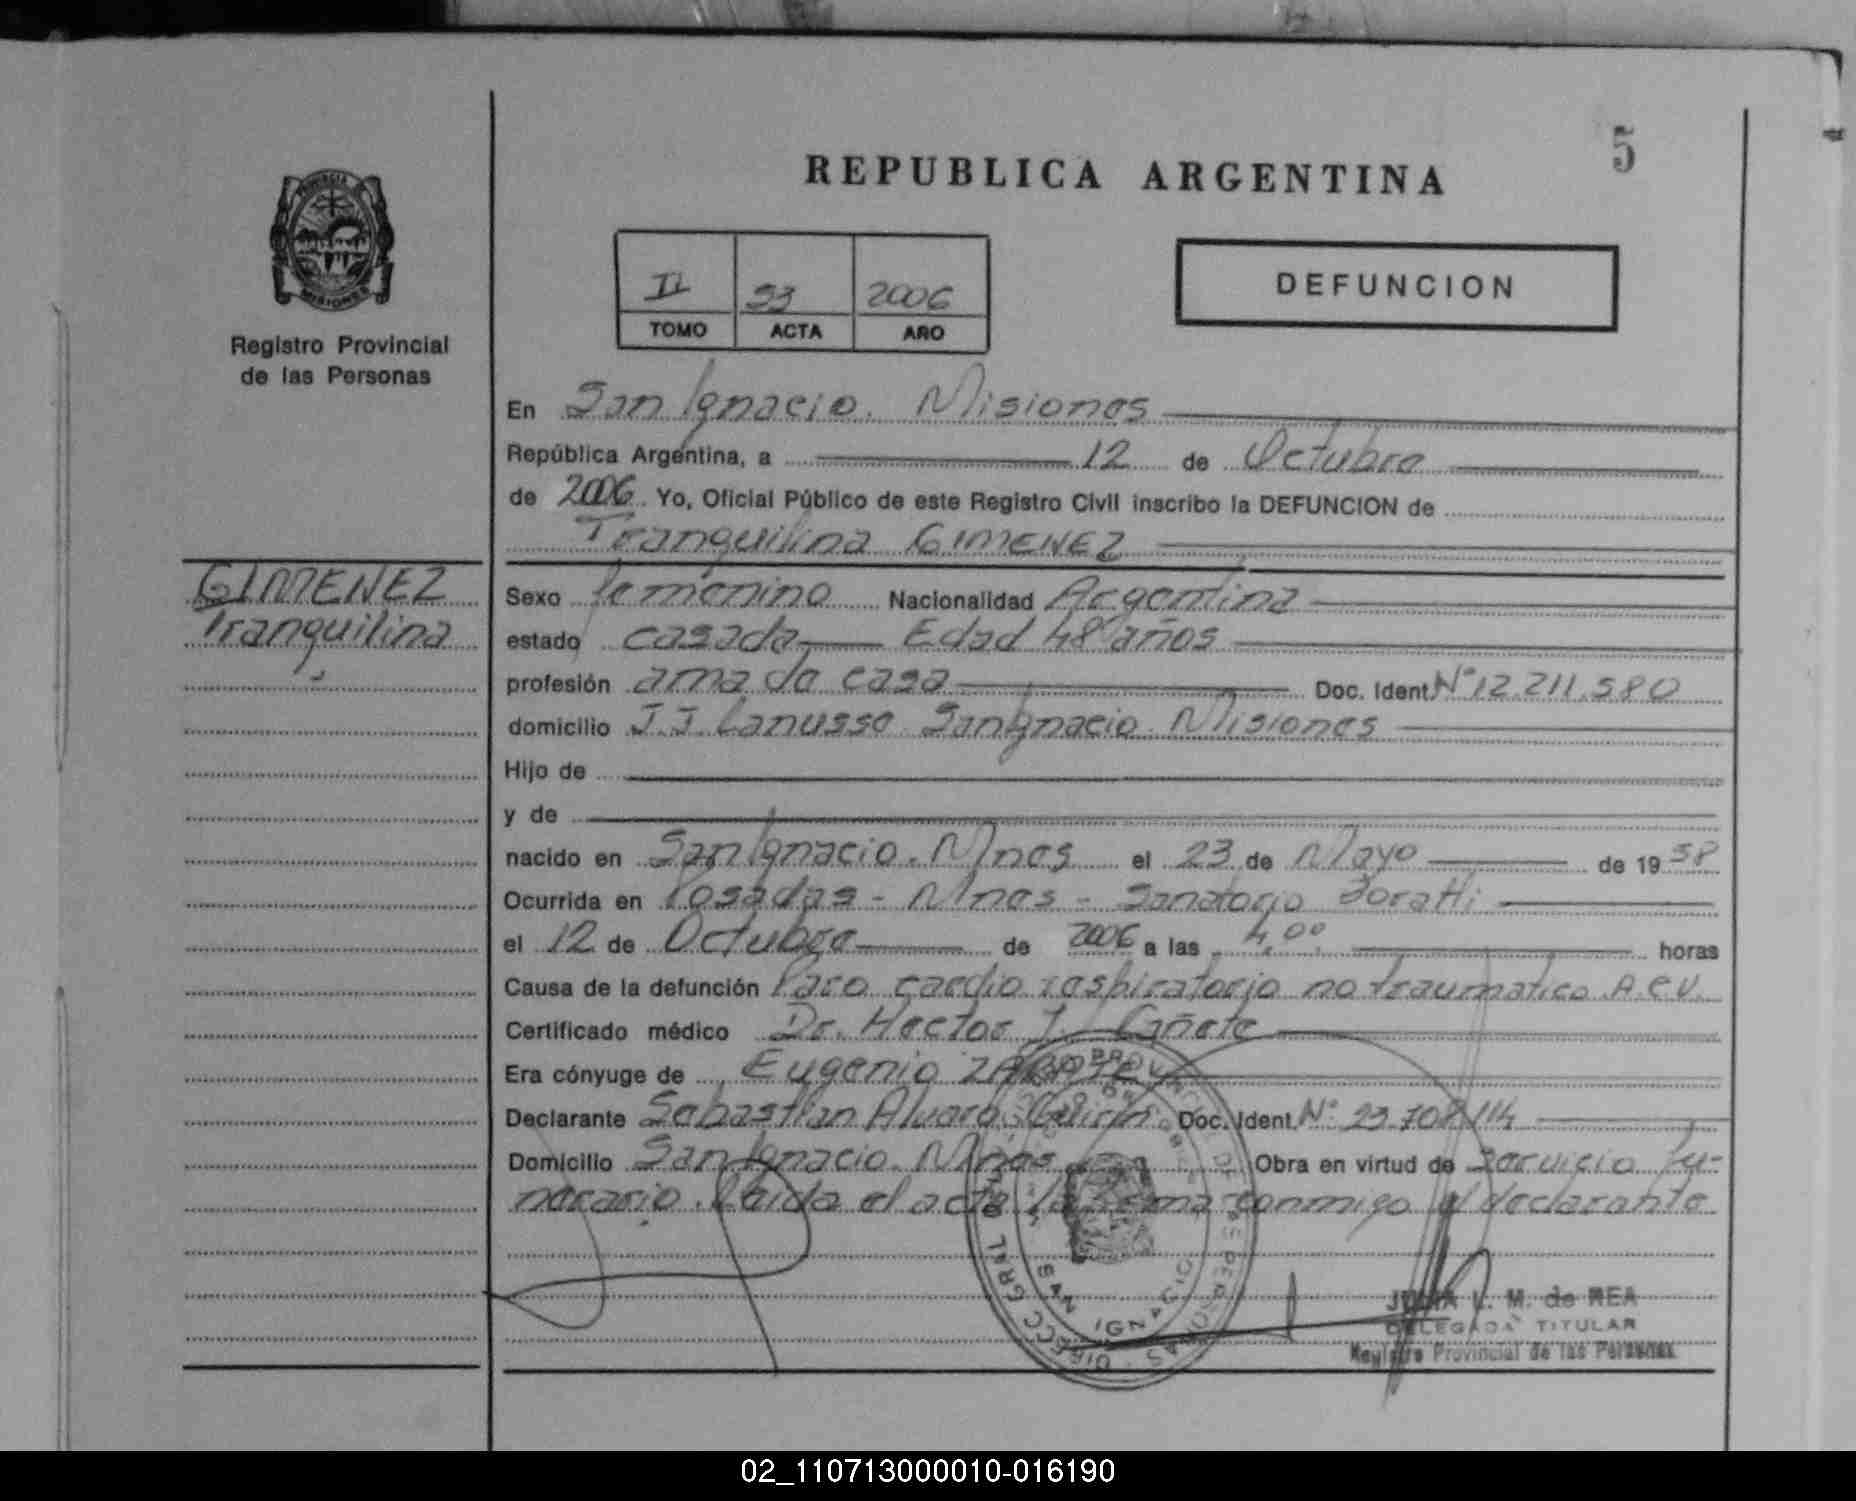 5
REPUBLICA ARGENTINA
PROVINCIA DE
MISIONES
Registro Provincial
de las Personas
II 53 2006
TOMO ACTA AÑO
DEFUNCION
En San Ignacio. Misiones
República Argentina, a 12 de Octubre
de 2006. Yo, Oficial Público de este Registro Civil inscribo la DEFUNCION de
Tranquilina GIMENEZ
GIMENEZ
Tranquilina
Sexo femenino Nacionalidad Argentina
estado casada Edad 48 años
profesión ama de casa Doc. Ident. Nº 12.211.580
domicilio J.J. Lanusse San Ignacio. Misiones
Hijo de
y de
nacido en San Ignacio. Mnes el 23 de Mayo de 1958
Ocurrida en Posadas - Mnes - Sanatorio Boratti
el 12 de Octubre de 2006 a las 4,00 horas
Causa de la defunción Paro cardio respiratorio no traumatico A.C.V.
Certificado médico Dr. Hector J. Cañete
Era cónyuge de Eugenio ZARATE
Declarante Sebastian Alvaro Doc. Ident. Nº 23.708.114
Domicilio San Ignacio. Mnes Obra en virtud de Servicio fu-
nerario. Leida el acta la firma conmigo el declarante
SAN IGNACIO
JULIA L. M. de REA
DELEGADA TITULAR
Registro Provincial de las Personas
02_110713000010-016190